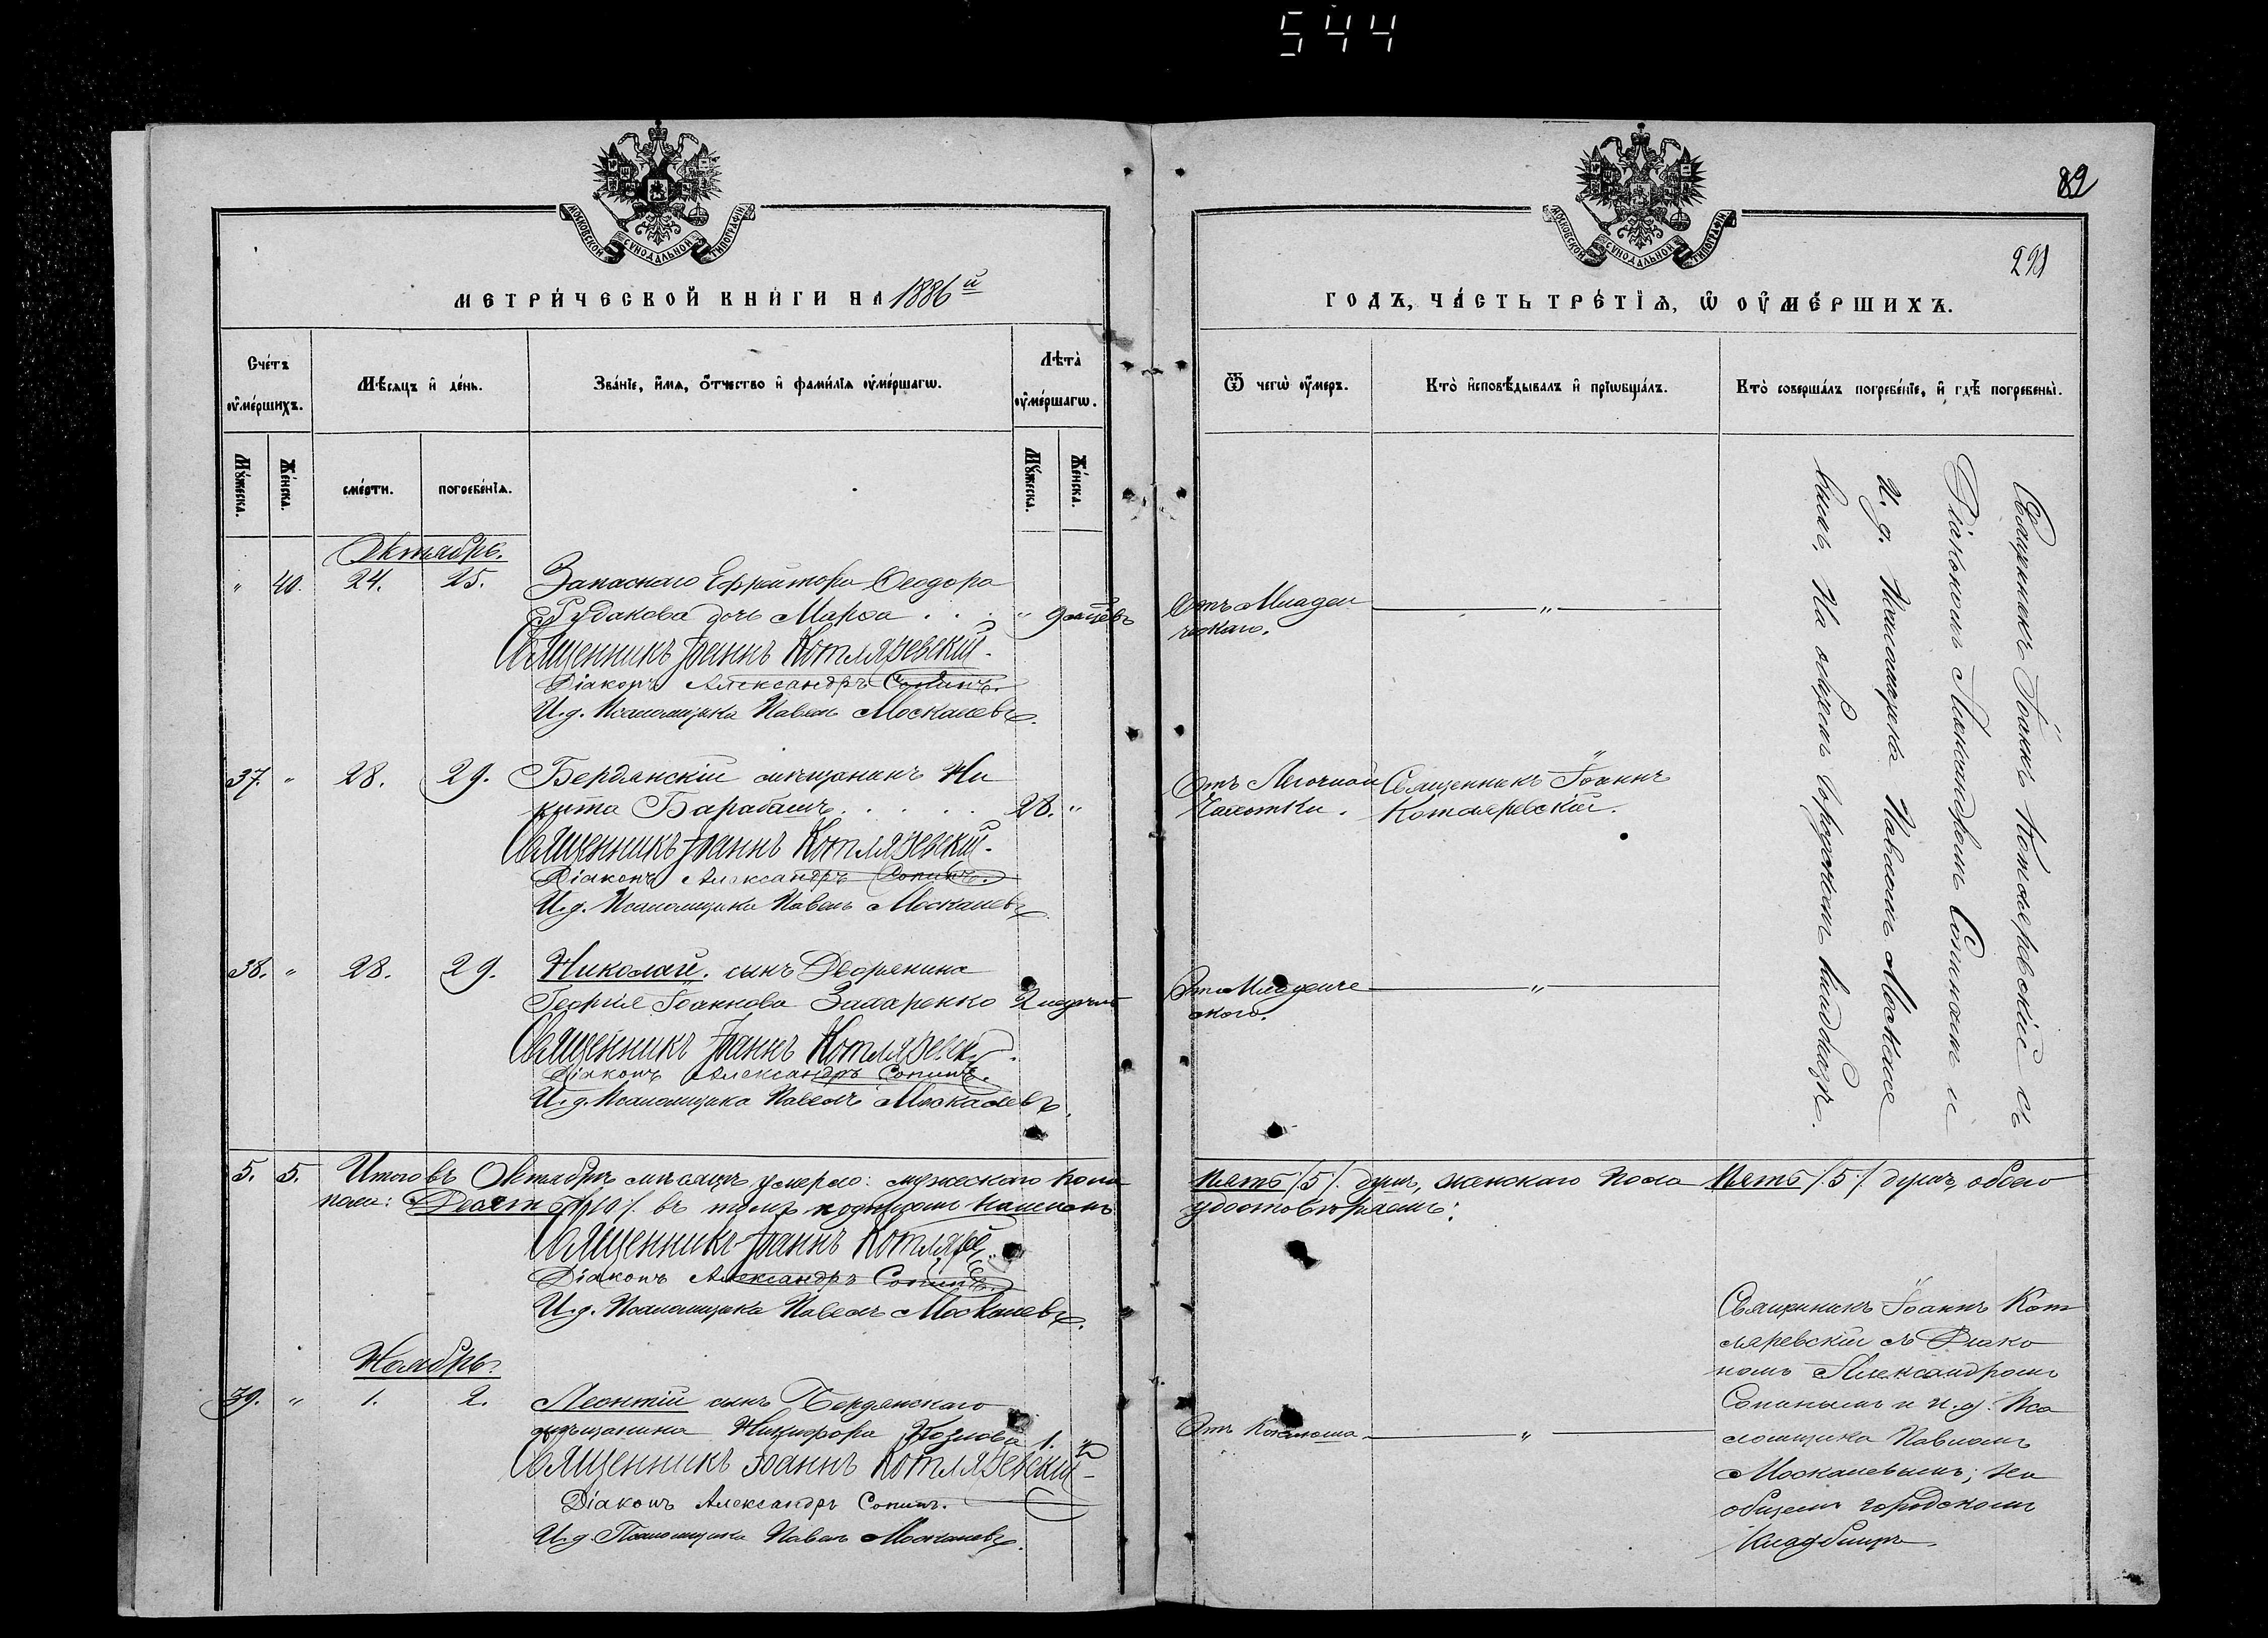 544
МОСКОВСКОЙ СѴНОДАЛЬНОЙ ТИПОГРАФІИ
МЕТРИ́ЧЕСКОЙ КНИ́ГИ НА 1886й
Сче́тъ ᲂу҆ме́ршихъ.
Мѣ́сяцъ и҆ де́нь.
Зва́нїе, и҆́мя, ѻ҆́тчество и҆ фами́лїя ᲂу҆ме́ршагѡ.
Лѣ́та ᲂу҆ме́ршагѡ.
Мꙋ́жеска.
Же́нска.
сме́рти.
погребе́нїѧ.
Мꙋ́жеска.
Же́нска.
Октябрь.
" 40. 24. 25. Запаснаго Ефрейтора Ѳеодора
Рудакова дочь Марѳа . . . "
Священникъ Іоаннъ Котляревскій.
Діаконъ Александръ Сопинъ.
И. д. Псаломщика Павелъ Москалевъ.
37. " 28. 29. Бердянскій мѣщанинъ Ни
кита Барабашъ . . . . . 28. "
Священникъ Іоаннъ Котляревскій.
Діаконъ Александръ Сопинъ.
И. д. Псаломщика Павелъ Москалевъ.
38. " 28. 29. Николай, сынъ Дворянина
Георгія Іоаннова Захаренко 2
Священникъ Іоаннъ Котляревскій.
Діаконъ Александръ Сопинъ.
И. д. Псаломщика Павелъ Москалевъ.
5. 5. Итого въ Октябрѣ мѣсяцѣ умерло: мужескаго пола
пола: Десять /10/. въ томъ подписомъ нашимъ
Священникъ Іоаннъ Котляревскій.
Діаконъ Александръ Сопинъ.
И. д. Псаломщика Павелъ Москалевъ.
Ноябрь.
39. " 1. 2. Леонтій сынъ Бердянскаго
мѣщанина Никифора Козлова 1. "
Священникъ Іоаннъ Котляревскій
Діаконъ Александръ Сопинъ.
И. д. Псаломщика Павелъ Москалевъ.
82
МОСКОВСКОЙ СѴНОДАЛЬНОЙ ТИПОГРАФІИ
ГОДЪ, ЧА́СТЬ ТРЕ́ТЇѦ, Ѡ҆ ОУ҆МЕ́РШИХЪ.
Ѿ чегѡ̀ ᲂу҆́меръ.
Кто̀ и҆сповѣ́дывалъ и҆ прїѡбща́лъ.
Кто̀ соверша́лъ погребе́нїе, и҆ гдѣ̀ погребены̀.
Отъ Младен
ческаго. "
Отъ Легочной
Чахотки.
Священникъ Іоаннъ
Котляревскій.
Отъ Младенче
скаго. "
Священникъ Іоаннъ Котляревскій съ
Діакономъ Александромъ Сопинымъ и
И. д. Псаломщика Павломъ Москале
вымъ, На общемъ городскомъ кладбищѣ.
Пять /5/ душъ, женскаго пола Пять /5/ душъ, обоего
удостовѣряемъ:
Отъ Коклюша "
Священникъ Іоаннъ Кот
ляревскій съ Діако
номъ Александромъ
Сопинымъ и и. д. Пса
ломщика Павломъ
Москалевымъ; на
общемъ городскомъ
кладбищѣ